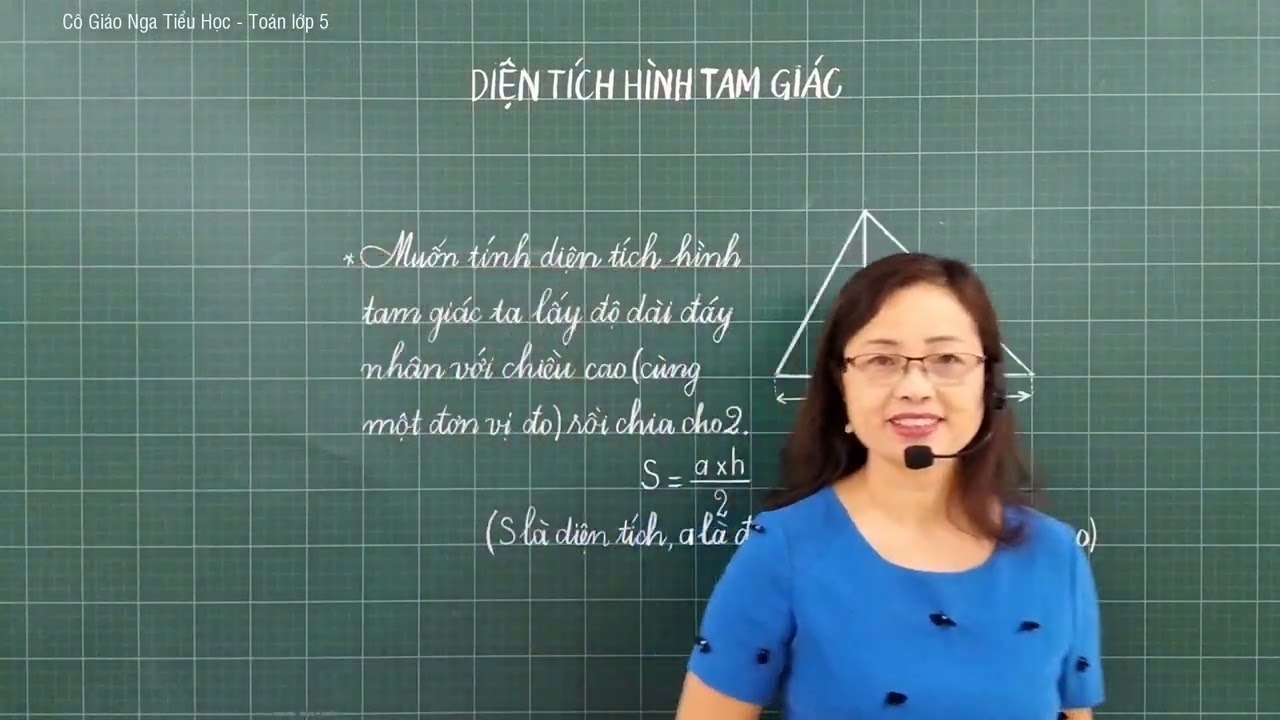 Cô Giáo Nga Tiểu Học - Toán lớp 5
DIỆN TÍCH HÌNH TAM GIÁC
* Muốn tính diện tích hình
tam giác ta lấy độ dài đáy
nhân với chiều cao (cùng
một đơn vị đo) rồi chia cho 2.
S = a x h
2
(S là diện tích, a là